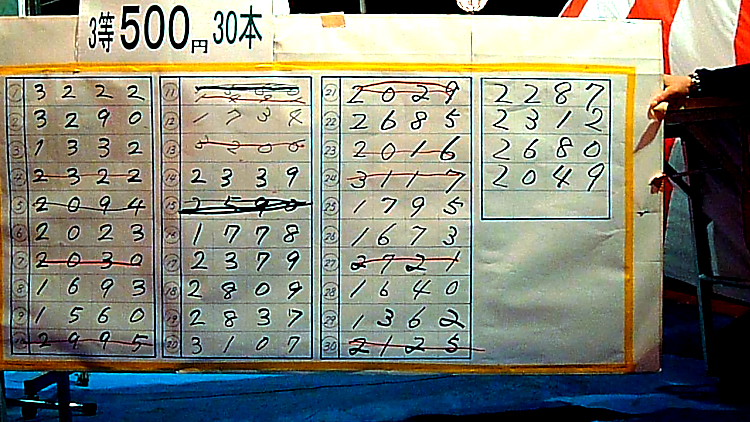 3等500円30本
① 3222
② 3290
③ 1332
④ 2322
⑤ 2094
⑥ 2023
⑦ 2030
⑧ 1693
⑨ 1560
⑩ 2995
⑪
⑫ 173
⑬ 3200
⑭ 2339
⑮ 2590
⑯ 1778
⑰ 2379
⑱ 2809
⑲ 2837
⑳ 3107
㉑ 2029
㉒ 2685
㉓ 2016
㉔ 3117
㉕ 1795
㉖ 1673
㉗ 2721
㉘ 1640
㉙ 1362
㉚ 2125
2287
2312
2680
2049